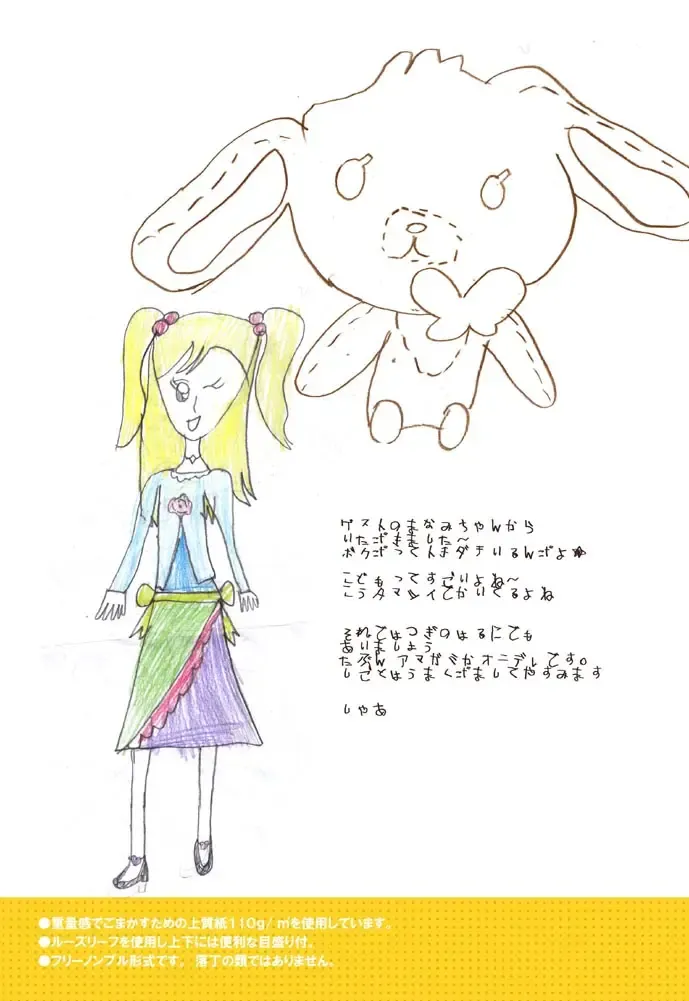 ゲストのまなみちゃんから
いただきました～
ボクだってんまダチいるんだよ
こどもってすごいよね～
こうタマシイでかいてるよね
それではつぎのはるにでも
あいましょう
たぶん アマガミかオニデレです。
しごとはうまくだましてやすみます
しゃあ
●質量感でごまかすための上質紙110g/㎡を使用しています。
●ルーズリーフを使用し上下には便利な目盛り付。
●フリーノンブル形式です。落丁の類ではありません。